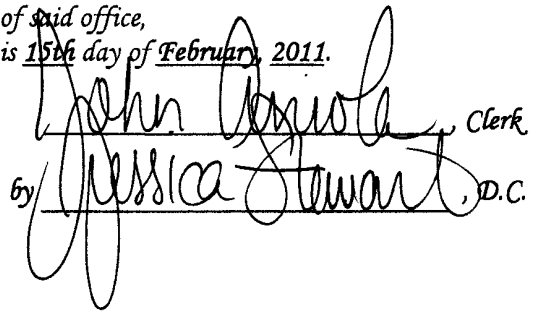 of said office,
is 15th day of February, 2011.
John Arriola, Clerk
by Jessica Stewart, D.C.